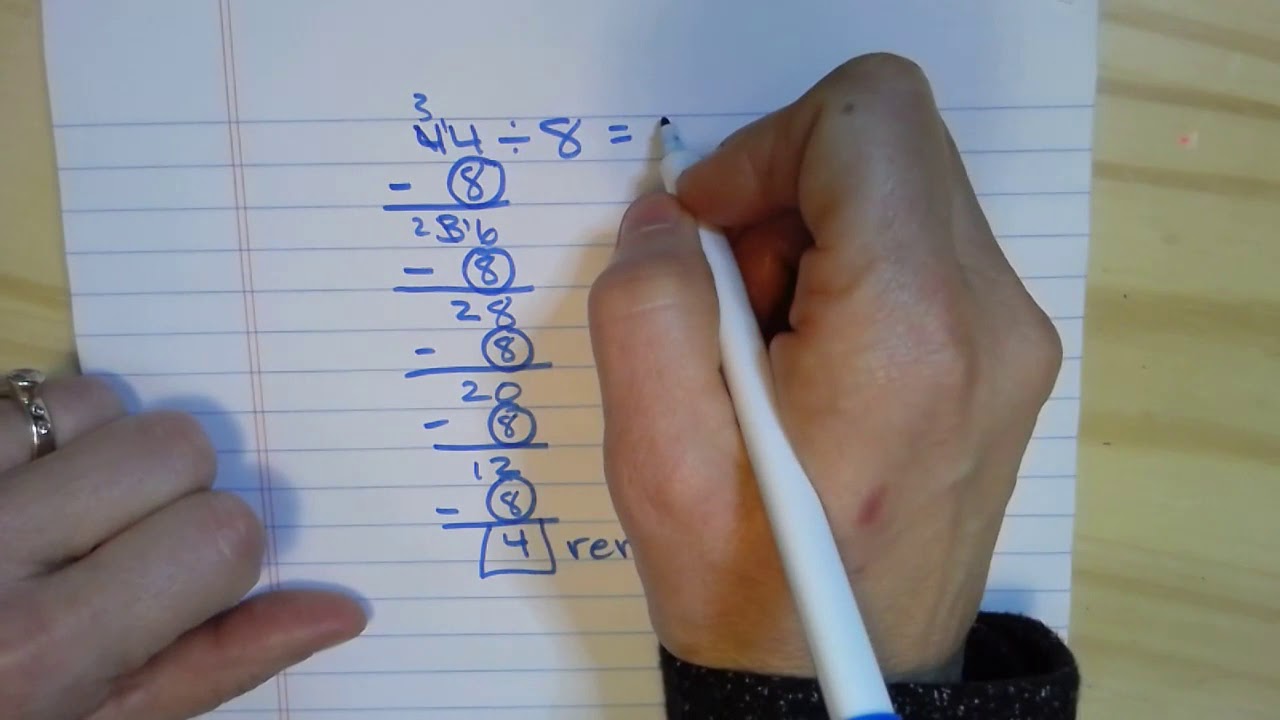 3
44 ÷ 8 =
- 8
2 3 16
- 8
28
- 8
20
- 8
12
- 8
4 rer